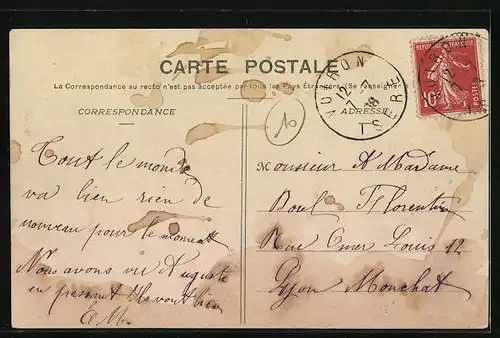 CARTE POSTALE
La Correspondance au recto n'est pas acceptée par tous les Pays Étrangers (Se renseigner
CORRESPONDANCE
ADRESSE
Tout le monde
va bien rien de
nouveau pour le moment
Nous avons vu Auguste
en passant
bien
Monsieur & Madame
Florentin
Rue Omer Louis 12
Lyon Monchat
10
12
7 -7
18
ISERE
REPUBLIQUE FRANÇAISE
10